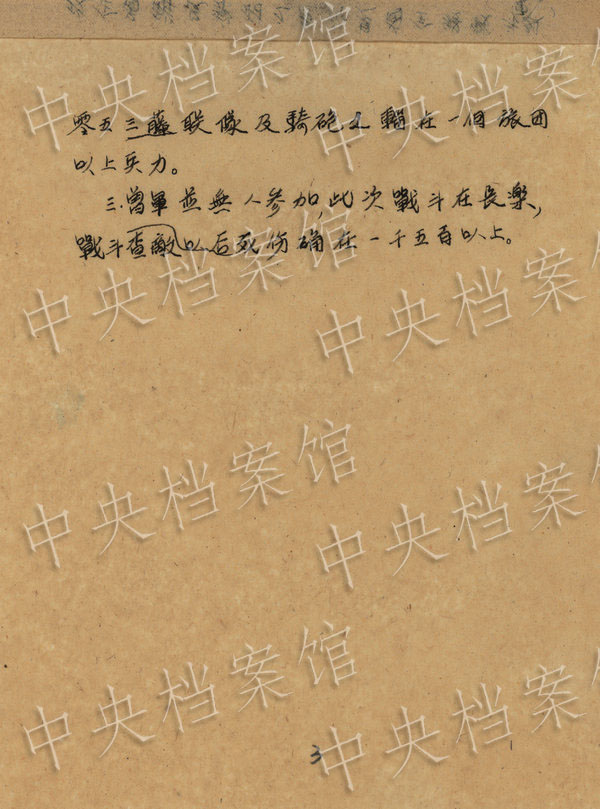 零五三藤联队及騎砲工輜在一個旅团
以上兵力。
三.曾軍並無人参加,此次戰斗在長樂,
戰斗查敵以后死伤确在一千五百以上。
3
中央档案馆
中央档案馆
中央档案馆
中央档案馆
中央档案馆
中央档案馆
中央档案馆
中央档案馆